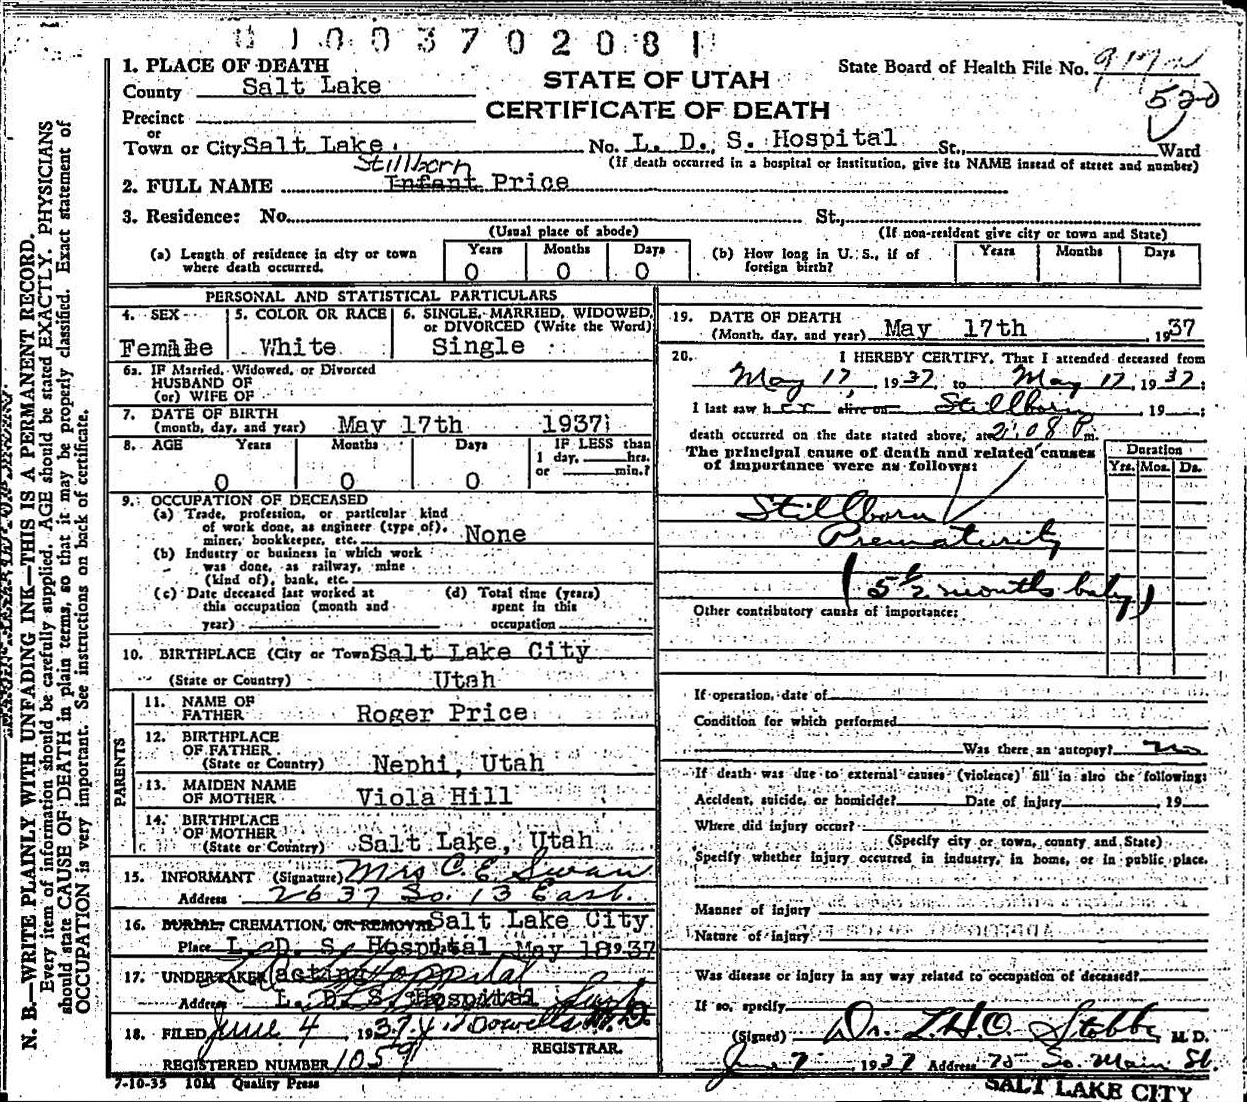 1003702081
1. PLACE OF DEATH
County Salt Lake
STATE OF UTAH
CERTIFICATE OF DEATH
State Board of Health File No.
520
Precinct
or
Town or City Salt Lake. No. L. D. S. Hospital St., Ward
(If death occurred in a hospital or institution, give its NAME instead of street and number)
Stillborn
2. FULL NAME Infant Price
3. Residence: No. St.,
(Usual place of abode) (If non-resident give city or town and State)
(a) Length of residence in city or town where death occurred. Years 0 Months 0 Days 0
(b) How long in U. S., if of foreign birth? Years Months Days
PERSONAL AND STATISTICAL PARTICULARS
4. SEX Female
5. COLOR OR RACE White
6. SINGLE, MARRIED, WIDOWED, or DIVORCED (Write the Word) Single
6a. IF Married, Widowed, or Divorced
HUSBAND OF
(or) WIFE OF
7. DATE OF BIRTH
(month, day, and year) May 17th 1937
8. AGE Years 0 Months 0 Days 0
IF LESS than
1 day, hrs.
or min.?
9. OCCUPATION OF DECEASED
(a) Trade, profession, or particular kind
of work done, as engineer (type of),
miner, bookkeeper, etc. None
(b) Industry or business in which work
was done, as railway, mine
(kind of), bank, etc.
(c) Date deceased last worked at
this occupation (month and
year)
(d) Total time (years)
spent in this
occupation
10. BIRTHPLACE (City or Town) Salt Lake City
(State or Country) Utah
PARENTS
11. NAME OF
FATHER Roger Price
12. BIRTHPLACE
OF FATHER
(State or Country) Nephi, Utah
13. MAIDEN NAME
OF MOTHER Viola Hill
14. BIRTHPLACE
OF MOTHER
(State or Country) Salt Lake, Utah
15. INFORMANT (Signature) Mrs C. E. Swan
Address 2637 So. 13 East.
16. BURIAL, CREMATION, OR REMOVAL Salt Lake City
Place L. D. S. Hospital May 18 1937
17. UNDERTAKER acting Hospital
Address L. D. S. Hospital
18. FILED June 4, 1937 M.D.
REGISTRAR.
REGISTERED NUMBER 1059
7-10-35 10M Quality Press
19. DATE OF DEATH
(Month, day, and year) May 17th 1937
20. I HEREBY CERTIFY, That I attended deceased from
May 17, 1937, to May 17, 1937;
I last saw her alive on Stillborn, 19 ;
death occurred on the date stated above, at 2:08 P m.
The principal cause of death and related causes
of importance were as follows:
Duration
Yrs. Mos. Ds.
Stillborn
Prematurity
(5 1/2 months baby)
Other contributory causes of importance:
If operation, date of
Condition for which performed
Was there an autopsy? no
If death was due to external causes (violence) fill in also the following:
Accident, suicide, or homicide? Date of injury , 19
Where did injury occur?
(Specify city or town, county and State)
Specify whether injury occurred in industry, in home, or in public place.
Manner of injury
Nature of injury
Was disease or injury in any way related to occupation of deceased?
If so, specify
(Signed) Dr. L.H.O. Stobbe M. D.
June 7 1937 Address 75 So. Main St.
SALT LAKE CITY
N. B.—WRITE PLAINLY WITH UNFADING INK—THIS IS A PERMANENT RECORD.
Every item of information should be carefully supplied. AGE should be stated EXACTLY. PHYSICIANS
should state CAUSE OF DEATH in plain terms, so that it may be properly classified. Exact statement of
OCCUPATION is very important. See instructions on back of certificate.